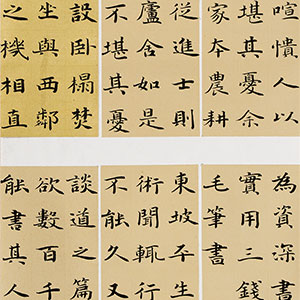 喧憒人以
堪其憂余
家本農耕
從進士則
廬舍如是
不堪其憂
設臥榻焚
坐與西鄰
之機相直
為資深書
實用三錢
毛筆書
東坡平生
術聞輒行
不能久又
談道之篇
欲數百千
能書其人